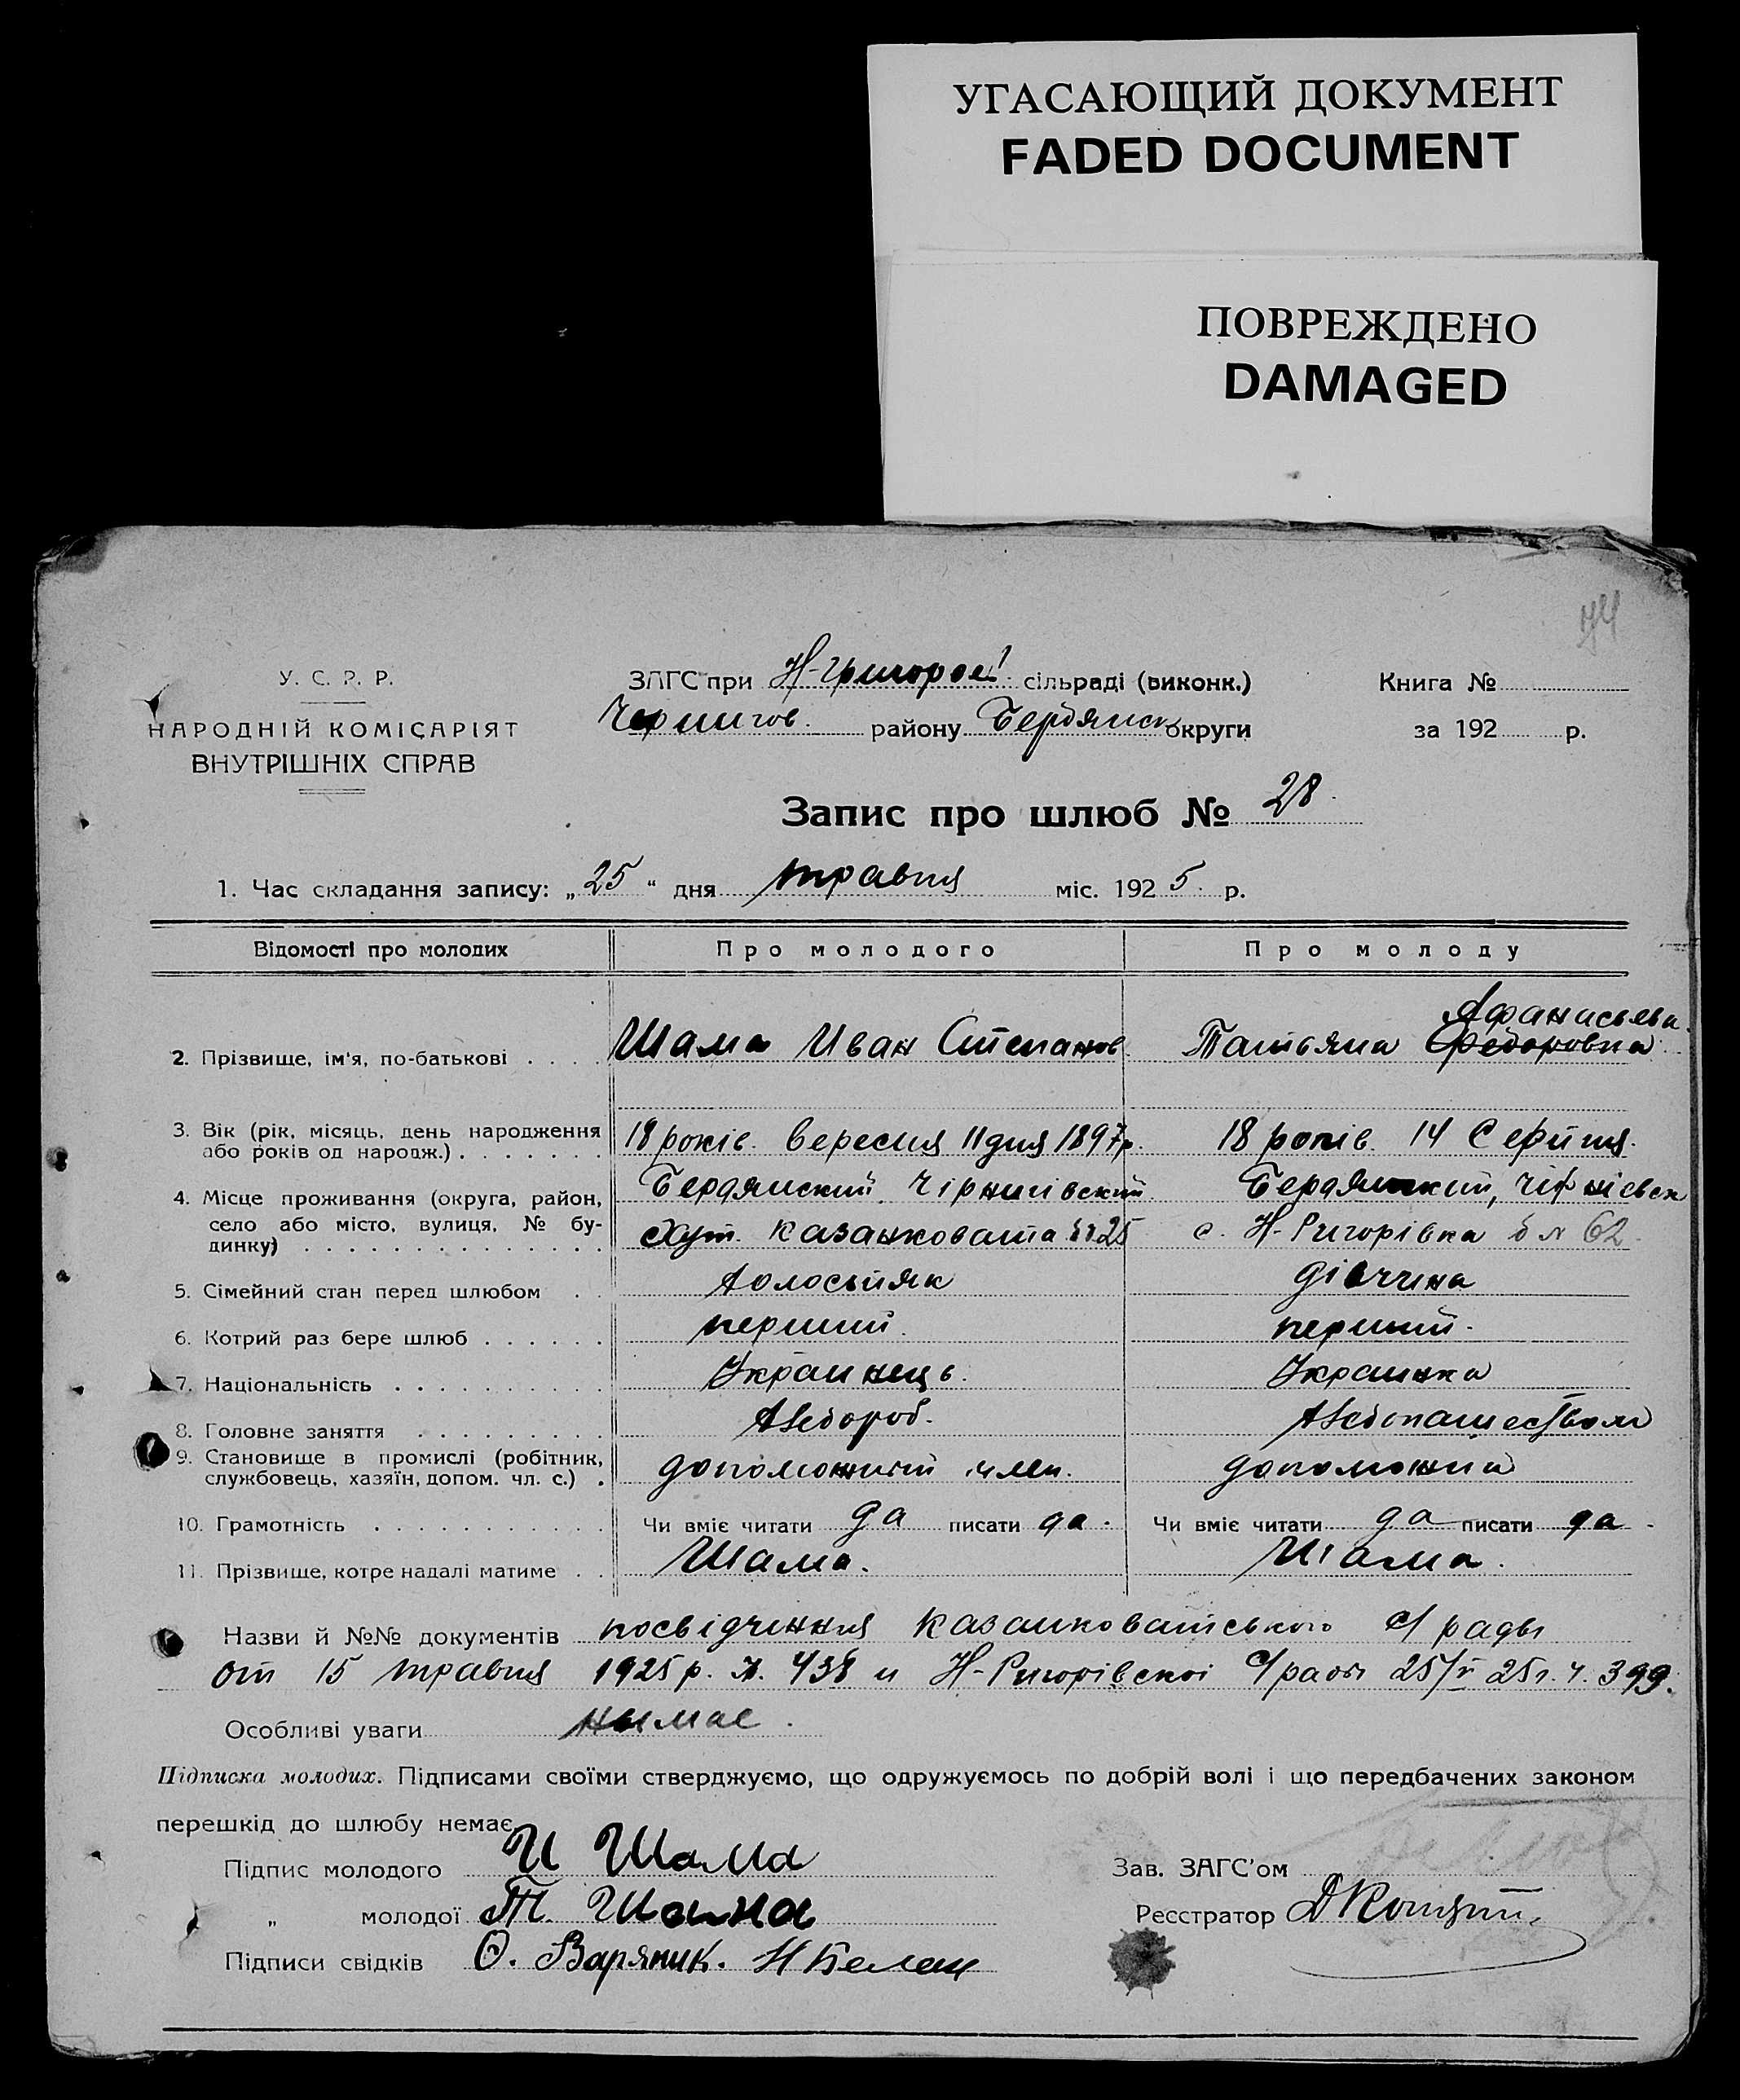 УГАСАЮЩИЙ ДОКУМЕНТ
FADED DOCUMENT
ПОВРЕЖДЕНО
DAMAGED
У. С. Р. Р.
НАРОДНІЙ КОМІСАРІЯТ
ВНУТРІШНІХ СПРАВ
ЗАГС при Н-Григоров. сільраді (виконк.)
Чернигов. району Бердянск округи
Книга №
за 192 р.
Запис про шлюб № 28.
1. Час складання запису: „25" дня травня міс. 1925 р.
Відомості про молодих Про молодого Про молоду
Афанасьева
2. Прізвище, ім'я, по-батькові Шама Иван Степанов Татьяна Федоровна
3. Вік (рік, місяць, день народження або років од народж.) 18 років. вересня 11 дня 1897 р. 18 років. 14 Серпня.
4. Місце проживання (округа, район, Бердянский, Чірнигівский. Бердянский, Чірнієвск
село або місто, вулиця, № бу- Хут. Казанковата №25 с. Н-Ригорівка б № 62
динку)
5. Сімейний стан перед шлюбом холостяк дівчина
6. Котрий раз бере шлюб перший. перший.
7. Національність Украинець. Украинка
8. Головне заняття хлебороб. хлебопашеством
9. Становище в промислі (робітник, службовець, хазяїн, допом. чл. с.) допоможний член. допоможний
10. Грамотність Чи вміє читати да писати да. Чи вміє читати да писати да
11. Прізвище, котре надалі матиме Шама. Шама.
Назви й №№ документів посвідчення Казанковатського с/ рады
от 15 травня 1925 р. №. 438 и Н-Ригорівскоі с/рады 25/V 25 г. ч. 399.
Особливі уваги нымае.
Підписка молодих. Підписами своїми стверджуємо, що одружуємось по добрій волі і що передбачених законом
перешкід до шлюбу немає.
Підпис молодого И Шама
Зав. ЗАГС'ом
„ молодої Т. Шама
Реєстратор
Підписи свідків О. Варяник. Н Белан